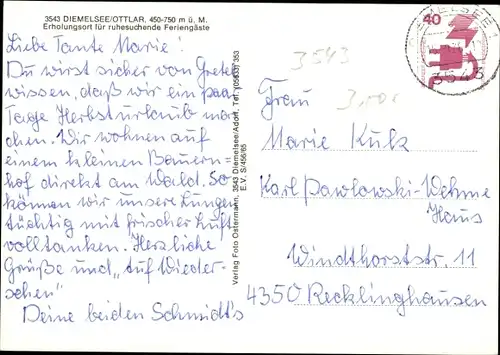 3543 DIEMELSEE/OTTLAR, 450-750 m ü. M.
Erholungsort für ruhesuchende Feriengäste
Liebe Tante Marie!
Du wirst sicher von Grete
wissen, daß wir ein paar
Tage Herbsturlaub ma=
chen. Wir wohnen auf
einem kleinen Bauern=
hof direkt am Wald. So
können wir unsere Lungen
tüchtig mit frischer Luft
volltanken. Herzliche
Grüße und "Auf Wieder=
sehen"
Deine beiden Schmidt's
Verlag Foto Ostermann, 3543 Diemelsee/Adorf, Tel. (05633) 353
E.V. S/456/65
40
DIEMELSEE 1
3543
3543
Frau
Marie Kulk
Karl Pawlowski-Wehme
Haus
Windthorststr. 11
4350 Recklinghausen